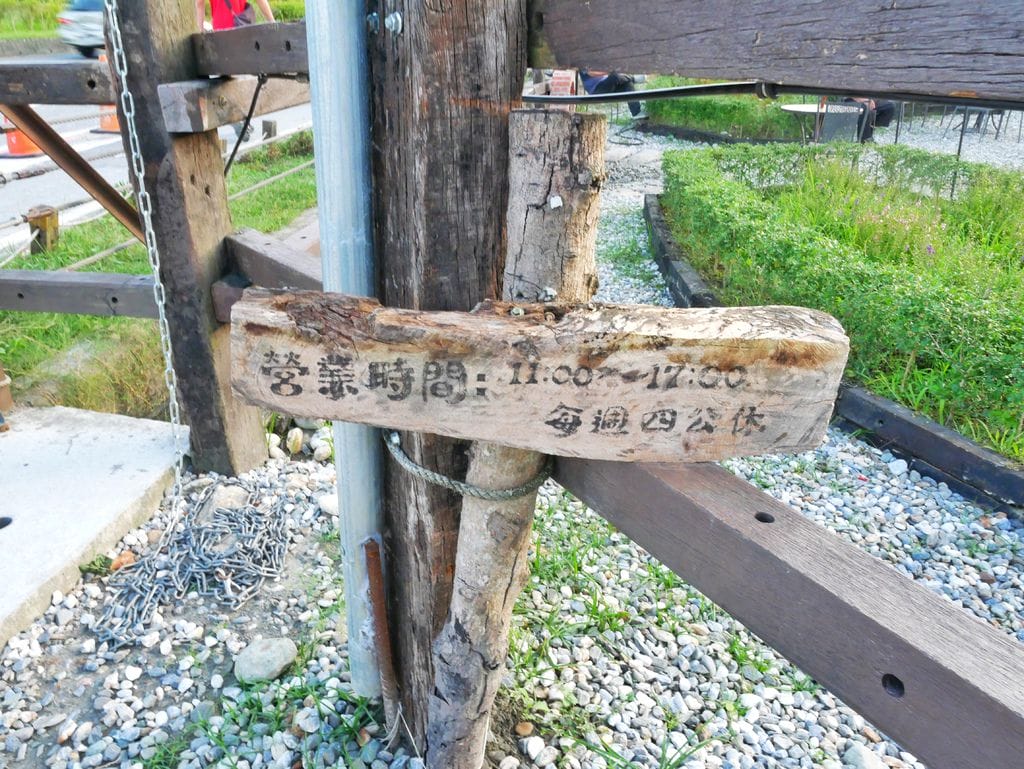 營業時間: 11:00~17:00
每週四公休